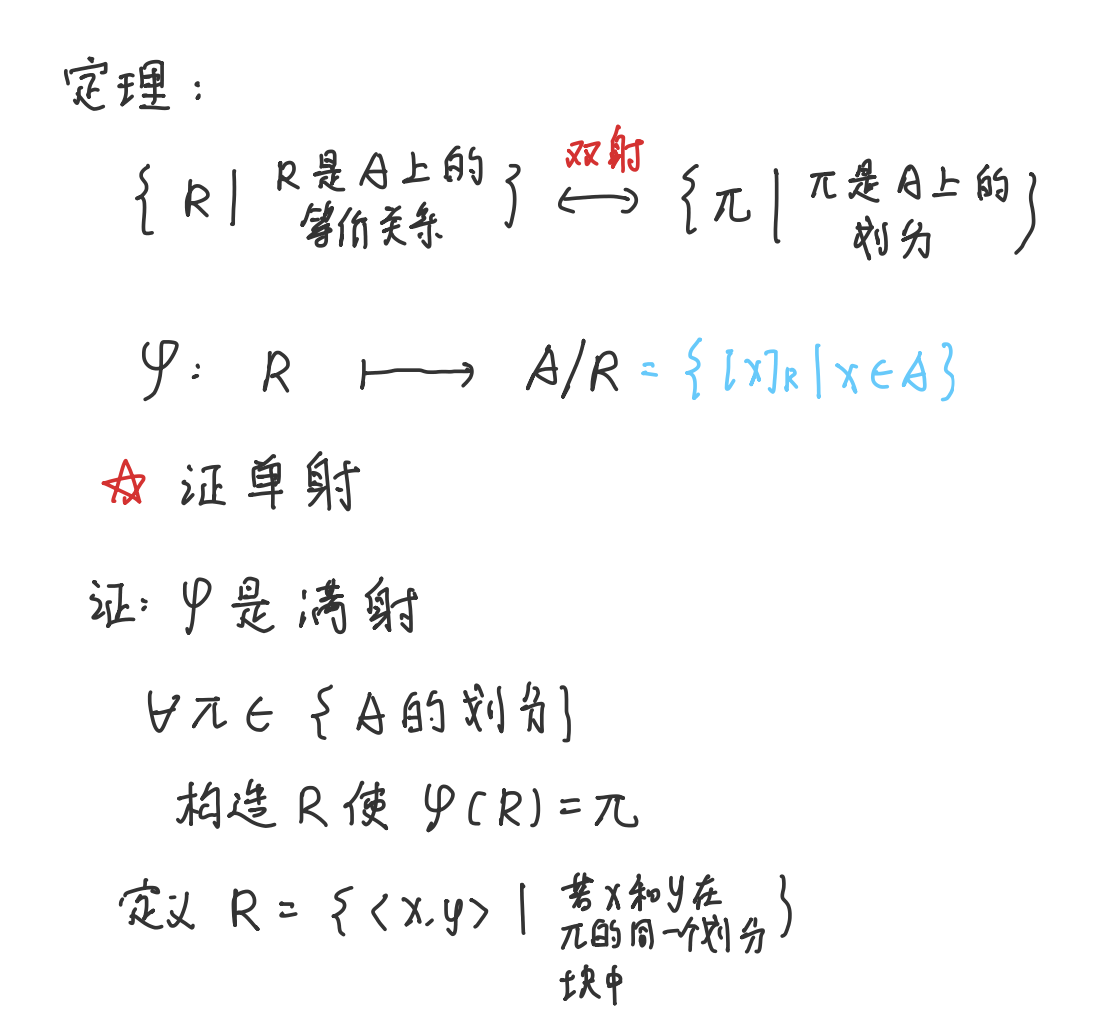 定理：
{ R | R是A上的等价关系 } 双射 ⟷ { π | π是A上的划分 }
φ: R ⟼ A/R = { [x]_R | x ∈ A }
☆ 证单射
证: φ是满射
∀π ∈ { A的划分 }
构造 R 使 φ(R) = π
定义 R = { <x,y> | 若x和y在π的同一个划分块中 }